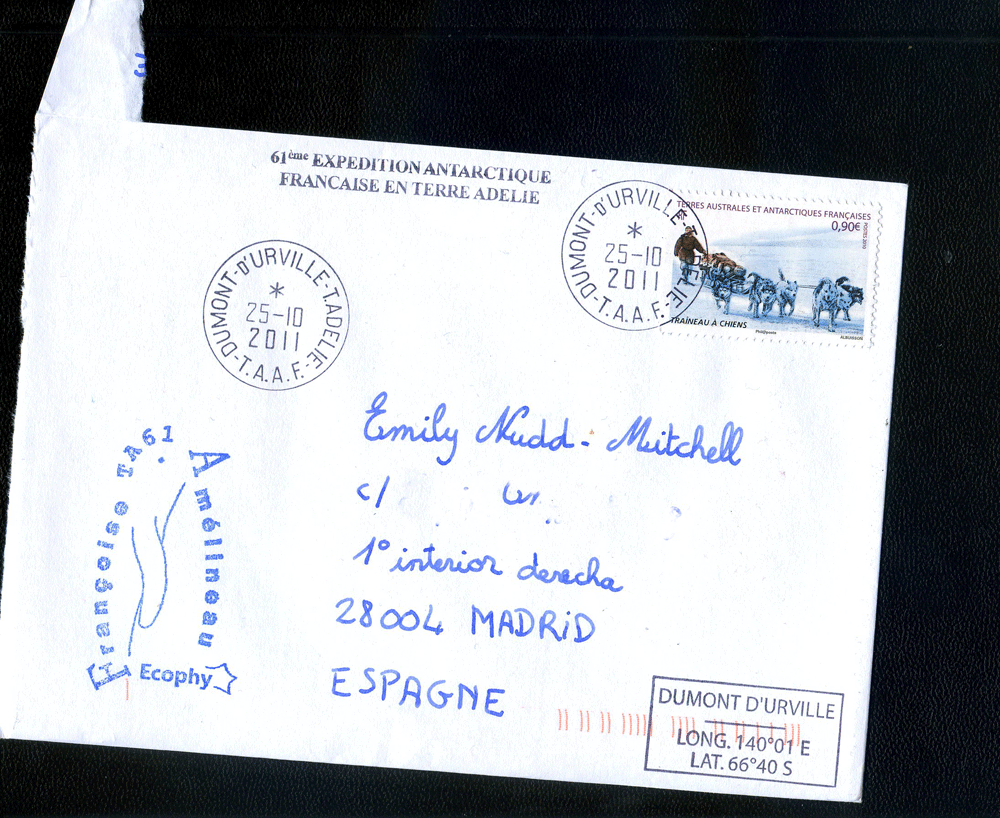 61ème EXPEDITION ANTARCTIQUE
FRANCAISE EN TERRE ADELIE
DUMONT-D'URVILLE-T.ADELIE
*
25-10
2011
-T.A.A.F.-
DUMONT-D'URVILLE-
*
25-10
2011
ELIE
-T.A.A.F.-
TERRES AUSTRALES ET ANTARCTIQUES FRANÇAISES
0,90€
POSTES 2010
TRAÎNEAU À CHIENS
ALBUISSON
Emily Nudd-Mitchell
c/
1° interior derecha
28004 MADRiD
ESPAGNE
Françoise TA61
Amélineau
Ecophy
DUMONT D'URVILLE
LONG. 140°01 E
LAT. 66°40 S